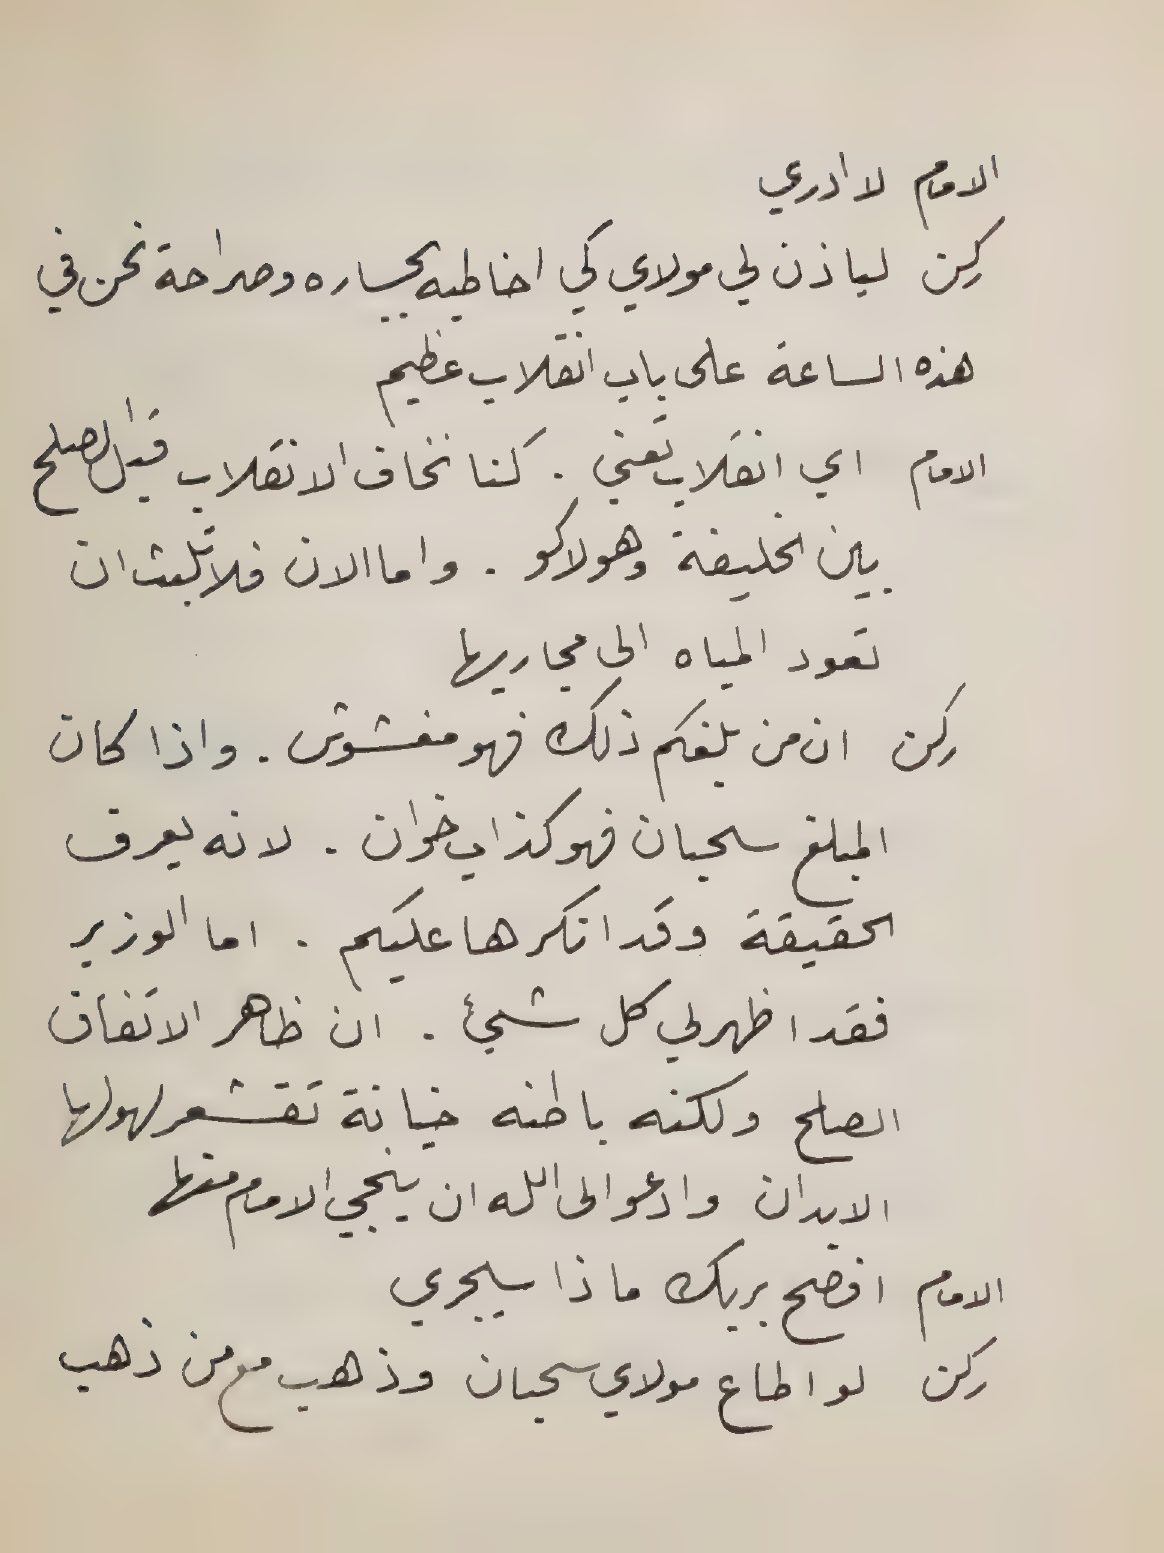 الامام لا ادري
ركن لياذن لي مولاي كي اخاطبه بجساره وصراحة نحن في
هذه الساعة على باب انقلاب عظيم
الامام اي انقلاب تعني . كنا نخاف الانقلاب قبل الصلح
بين الخليفة وهولاكو . واما الان فلا تلبث ان
تعود المياه الى مجاريها
ركن ان من بلغكم ذلك فهو مغشوش . واذا كان
المبلغ سحبان فهو كذاب خوان . لانه يعرف
الحقيقة وقد انكرها عليكم . اما الوزير
فقد اظهر لي كل شيئ . ان ظاهر الاتفاق
الصلح ولكنه باطنه خيانة تقشعر لهولها
الابدان وادعو الى الله ان ينجي الامام منها
الامام افصح بربك ماذا سيجري
ركن لو اطاع مولاي سحبان وذهب مع من ذهب